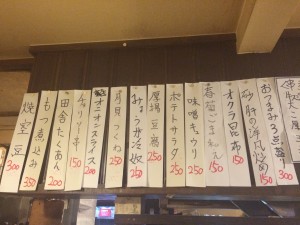 おつまみ3点盛り
300
砂肝の洋風炒め
150
オクラ昆布
150
春菊ごま和え
150
味噌キュウリ
250
ポテトサラダ
250
厚揚豆腐
250
みょうが冷奴
250
月見つくね
250
オニオンスライス
200
チャリ
150
田舎たくあん
200
もつ煮込み
350
枝豆
300